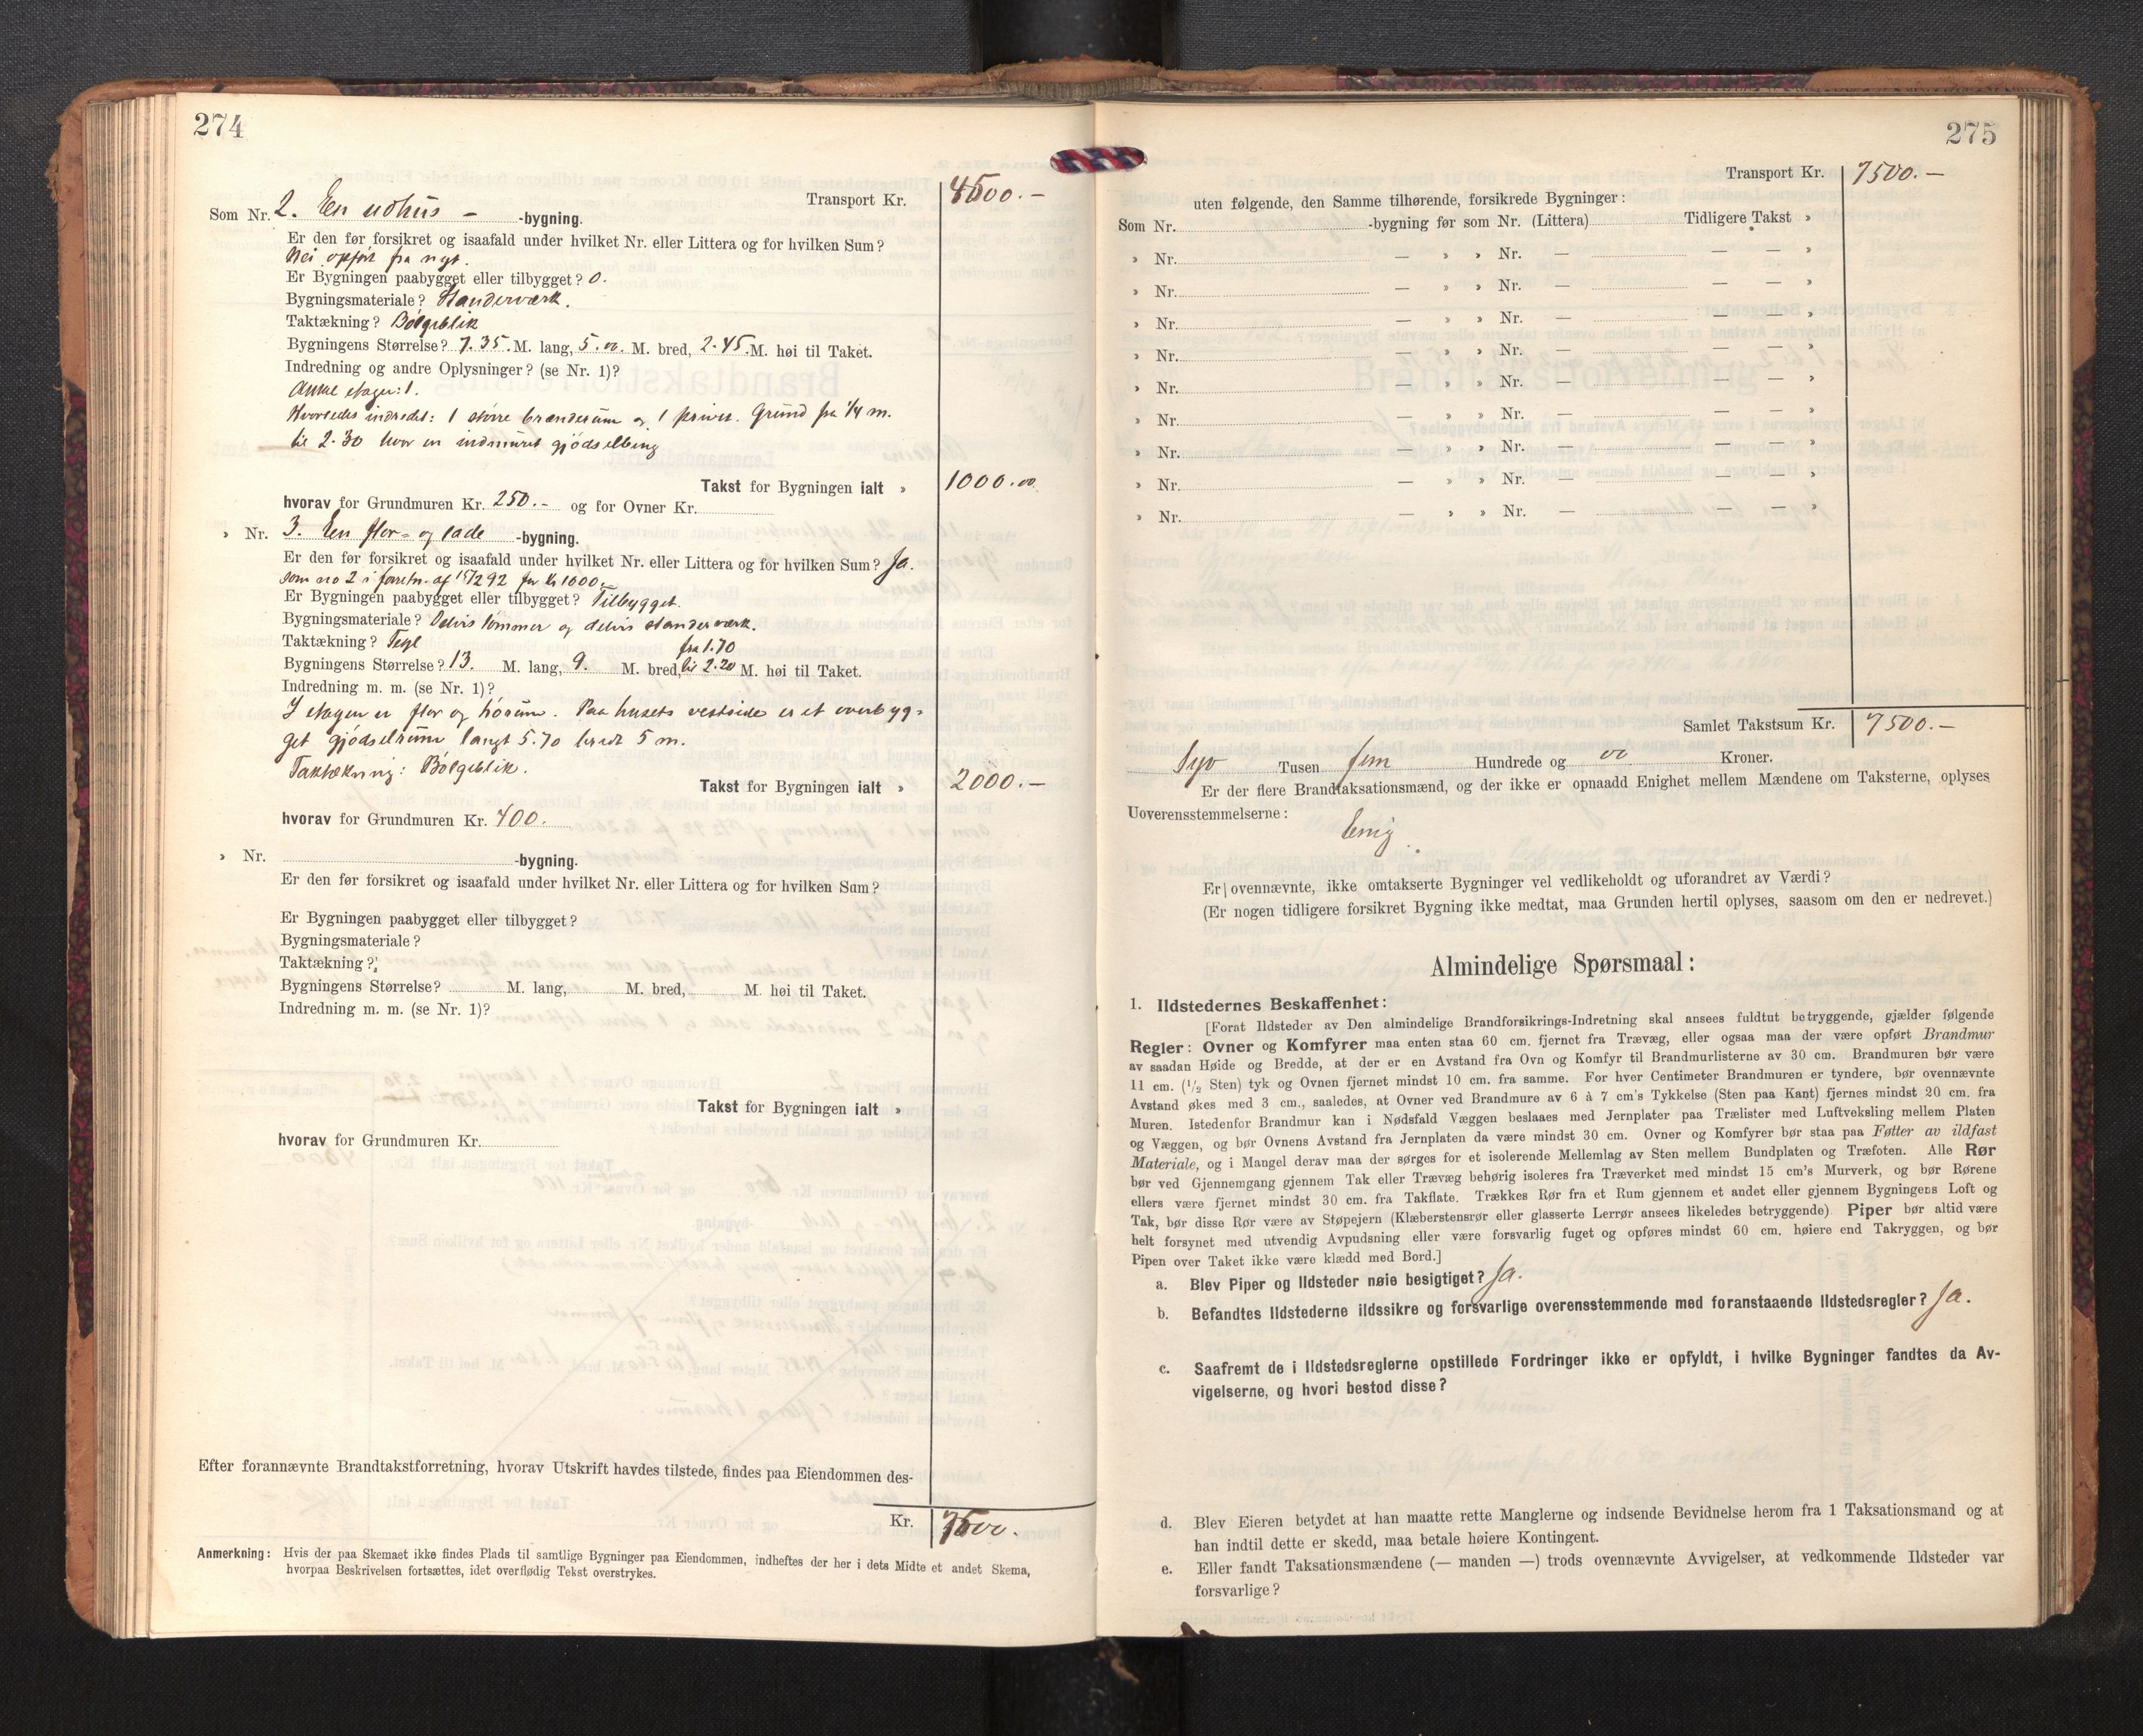 274
Transport Kr. 4500.-
Som Nr. 2. En udhus - -bygning.
Er den før forsikret og isaafald under hvilket Nr. eller Littera og for hvilken Sum?
Nei opført fra nyt.
Er Bygningen paabygget eller tilbygget? 0.
Bygningsmateriale? Standerværk.
Taktækning? Bølgeblik
Bygningens Størrelse? 7.35. M. lang, 5.00. M. bred, 2.45. M. høi til Taket.
Indredning og andre Oplysninger? (se Nr. 1)?
Antal etager: 1.
Hvorledes indredet: 1 større brænderum og 1 privet. Grund fra 1/4 m.
til 2.30 hvor en indmuret gjødselbing
Takst for Bygningen ialt » 1000.00
hvorav for Grundmuren Kr. 250.- og for Ovner Kr.
» Nr. 3. En flor- og lade -bygning.
Er den før forsikret og isaafald under hvilket Nr. eller Littera og for hvilken Sum? Ja.
som no 2 i forretn. af 15/2 92 for kr 1000.-
Er Bygningen paabygget eller tilbygget? Tilbygget.
Bygningsmateriale? Delvis tømmer og delvis standerværk.
Taktækning? Tegl
fra 1.70
Bygningens Størrelse? 13. M. lang, 9. M. bred, til 2.20 M. høi til Taket.
Indredning m. m. (se Nr. 1)?
I etagen er flor og hørum. Paa husets vestside er et overbyg-
get gjødselrum langt 5.70 bredt 5 m.
Taktækning: Bølgeblik.
Takst for Bygningen ialt » 2000.-
hvorav for Grundmuren Kr. 400.
» Nr. -bygning.
Er den før forsikret og isaafald under hvilket Nr. eller Littera og for hvilken Sum?
Er Bygningen paabygget eller tilbygget?
Bygningsmateriale?
Taktækning?
Bygningens Størrelse? M. lang, M. bred, M. høi til Taket.
Indredning m. m. (se Nr. 1)?
Takst for Bygningen ialt »
hvorav for Grundmuren Kr.
Efter forannævnte Brandtakstforretning, hvorav Utskrift havdes tilstede, findes paa Eiendommen des-
Kr. 7500.
Anmerkning: Hvis der paa Skemaet ikke findes Plads til samtlige Bygninger paa Eiendommen, indheftes der her i dets Midte et andet Skema,
hvorpaa Beskrivelsen fortsættes, idet overflødig Tekst overstrykes.
275
Transport Kr. 7500.-
uten følgende, den Samme tilhørende, forsikrede Bygninger:
Som Nr. -bygning før som Nr. (Littera) Tidligere Takst »
» Nr. — » » Nr. — — — »
» Nr. — » » Nr. — — — »
» Nr. — » » Nr. — — — »
» Nr. — » » Nr. — — — »
» Nr. — » » Nr. — — — »
» Nr. — » » Nr. — — — »
» Nr. — » » Nr. — — — »
» Nr. — » » Nr. — — — »
» Nr. — » » Nr. — — — »
Samlet Takstsum Kr. 7500.-
Syv Tusen fem Hundrede og 00 Kroner.
Er der flere Brandtaksationsmænd, og der ikke er opnaadd Enighet mellem Mændene om Taksterne, oplyses
Uoverensstemmelserne:
Enig.
Er ovennævnte, ikke omtakserte Bygninger vel vedlikeholdt og uforandret av Værdi?
(Er nogen tidligere forsikret Bygning ikke medtat, maa Grunden hertil oplyses, saasom om den er nedrevet.)
Almindelige Spørsmaal:
1. Ildstedernes Beskaffenhet:
[Forat Ildsteder av Den almindelige Brandforsikrings-Indretning skal ansees fuldtut betryggende, gjælder følgende
Regler: Ovner og Komfyrer maa enten staa 60 cm. fjernet fra Trævæg, eller ogsaa maa der være opført Brandmur
av saadan Høide og Bredde, at der er en Avstand fra Ovn og Komfyr til Brandmurlisterne av 30 cm. Brandmuren bør være
11 cm. (1/2 Sten) tyk og Ovnen fjernet mindst 10 cm. fra samme. For hver Centimeter Brandmuren er tyndere, bør ovennævnte
Avstand økes med 3 cm., saaledes, at Ovner ved Brandmure av 6 à 7 cm's Tykkelse (Sten paa Kant) fjernes mindst 20 cm. fra
Muren. Istedenfor Brandmur kan i Nødsfald Væggen beslaaes med Jernplater paa Trælister med Luftveksling mellem Platen
og Væggen, og bør Ovnens Avstand fra Jernplaten da være mindst 30 cm. Ovner og Komfyrer bør staa paa Føtter av ildfast
Materiale, og i Mangel derav maa der sørges for et isolerende Mellemlag av Sten mellem Bundplaten og Træfoten. Alle Rør
bør ved Gjennemgang gjennem Tak eller Trævæg behørig isoleres fra Træverket med mindst 15 cm's Murverk, og bør Rørene
ellers være fjernet mindst 30 cm. fra Takflate. Trækkes Rør fra et Rum gjennem et andet eller gjennem Bygningens Loft og
Tak, bør disse Rør være av Støpejern (Klæberstensrør eller glasserte Lerrør ansees likeledes betryggende) Piper bør altid være
helt forsynet med utvendig Avpudsning eller være forsvarlig fuget og opføres mindst 60 cm. høiere end Takryggen, og bør
Pipen over Taket ikke være klædd med Bord.]
a. Blev Piper og Ildsteder nøie besigtiget? Ja.
b. Befandtes Ildstederne ildssikre og forsvarlige overensstemmende med foranstaaende Ildstedsregler? Ja.
c. Saafremt de i Ildstedsreglerne opstillede Fordringer ikke er opfyldt, i hvilke Bygninger fandtes da Av-
vigelserne, og hvori bestod disse?
d. Blev Eieren betydet at han maatte rette Manglerne og indsende Bevidnelse herom fra 1 Taksationsmand og at
han indtil dette er skedd, maa betale høiere Kontingent.
e. Eller fandt Taksationsmændene (— manden —) trods ovennævnte Avvigelser, at vedkommende Ildsteder var
forsvarlige?